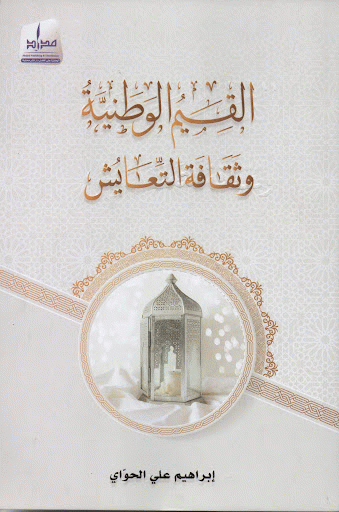 مداد
القِيَمُ الوَطنِيَّةُ
وثَقَافَة التَّعَايُش
إبراهيم علي الحوّاي